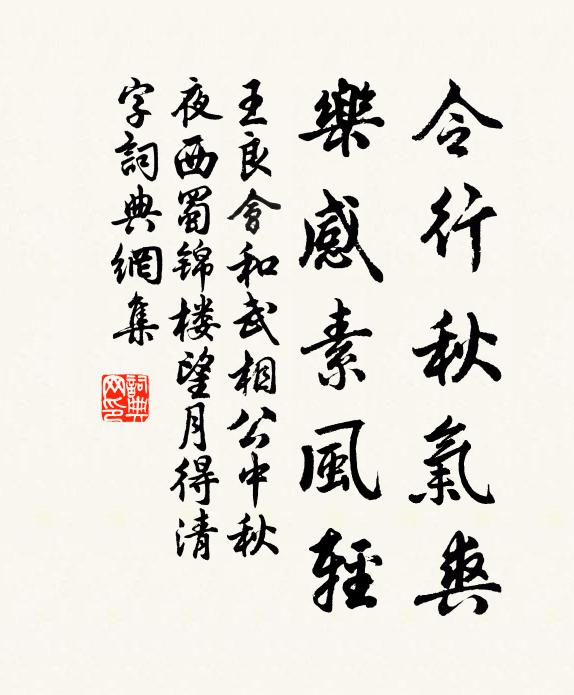 令行秋氣爽
樂感素風輕
王良會和武相公中秋
夜西蜀錦楼望月得清
字詞典網集
詞典网印